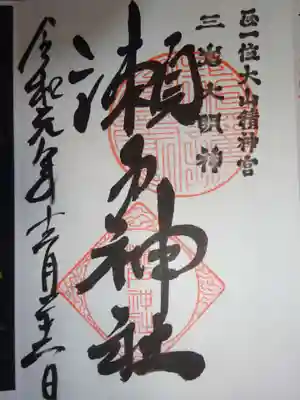 正一位大山積神宮
三島大明神
瀬戸神社
令和元年十二月 日